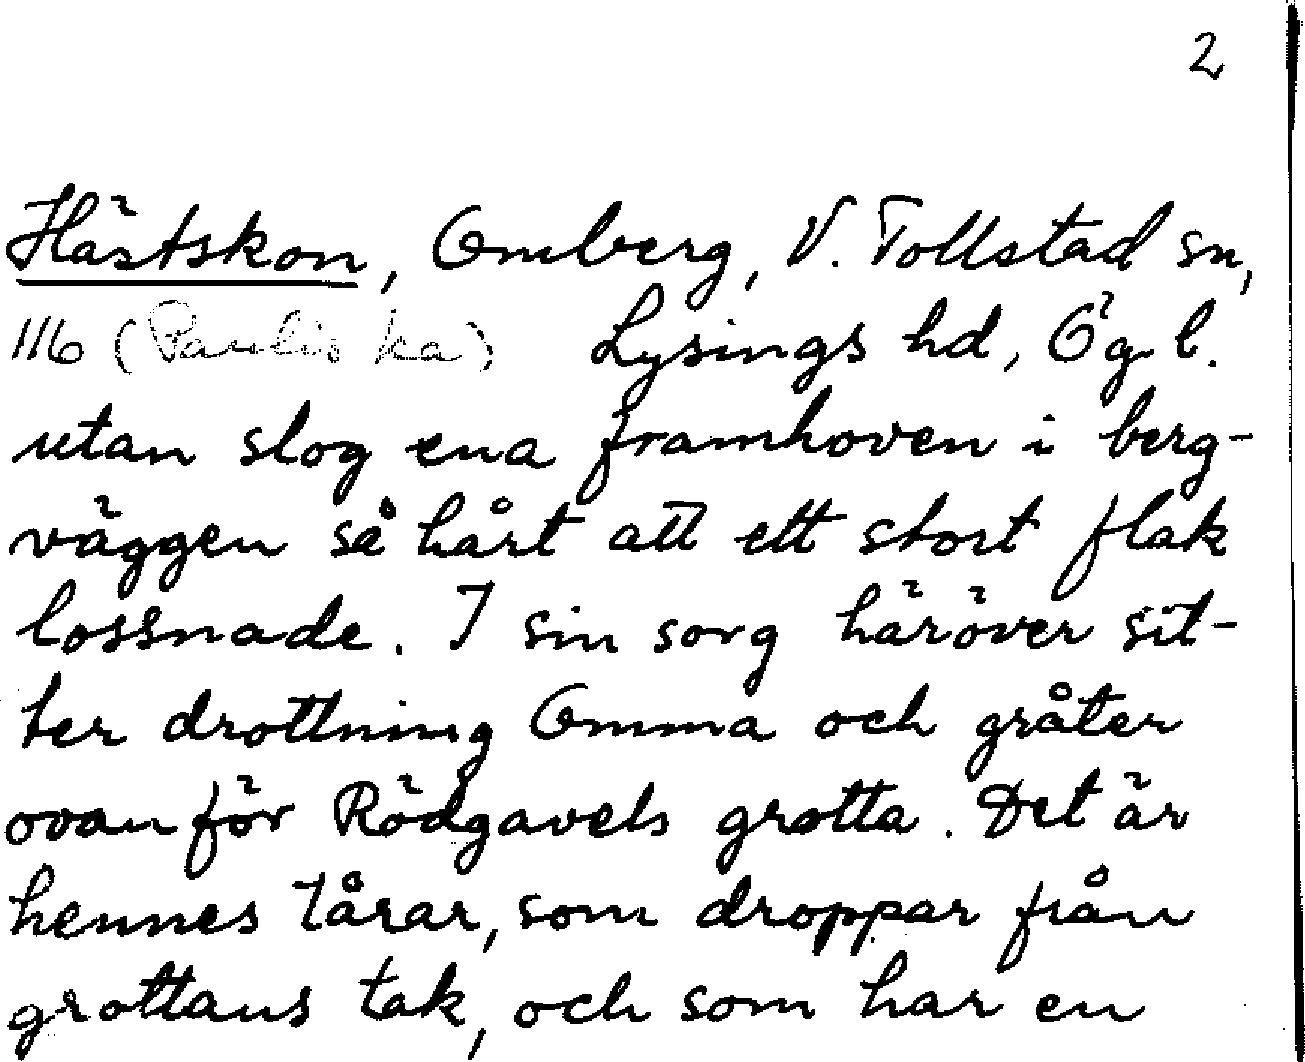 2
Hästskon, Omberg, V. Tollstad sn,
116 (Paulis ka) Lysings hd, Ög l.
utan slog ena framhoven i berg-
väggen så hårt att ett stort flak
lossnade. I sin sorg häröver sit-
ter drottning Omma och gråter
ovanför Rödgavels grotta. Det är
hennes tårar, som droppar från
grottans tak, och som har en